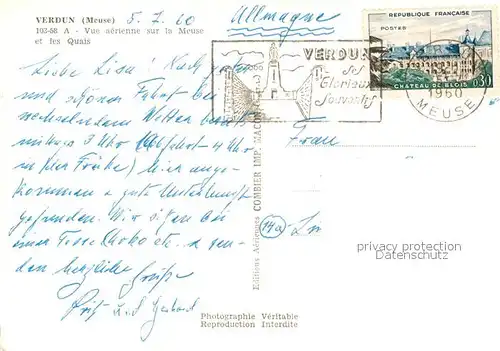 VERDUN (Meuse) 5.7.60
102-58 A - Vue aérienne sur la Meuse
et les Quais
Allemagne
Liebe Lisa! Nach guter
und schöner Fahrt bei
wechselndem Wetter bereits
mittags 3 Uhr (Abfahrt 4 Uhr
in der Frühe) hier ange-
kommen & gute Unterkunft
gefunden. Wir sitzen bei
einer Tasse Choko etc. & sen-
den herzliche Grüße
Fritz u. Gerhard
VERDUN
Ses
Glorieux
Souvenirs
REPUBLIQUE FRANÇAISE
POSTES
CHATEAU DE BLOIS 0,30
1960
MEUSE
Frau
14a
Editions Aériennes COMBIER IMP. MACON
Photographie Véritable
Reproduction Interdite
privacy protection
Datenschutz